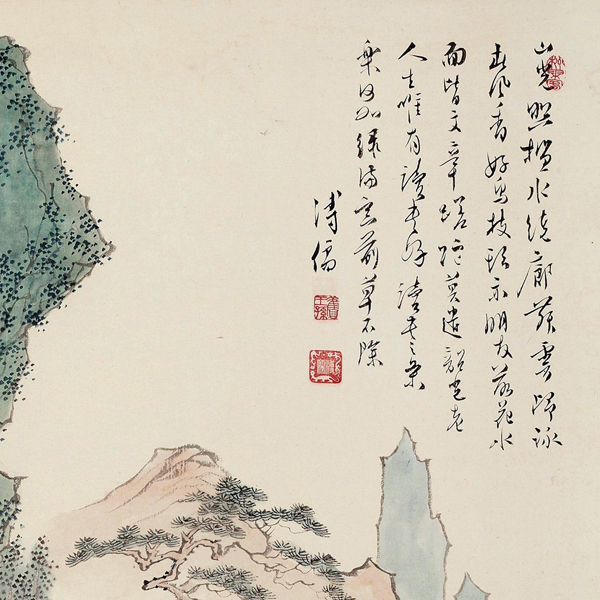 山光照檻水繞廊舞雩歸詠
春風香好鳥枝頭亦朋友落花水
面皆文章蹉跎莫遣韶光老
人生惟有讀書好讀書之樂
樂何如綠滿窗前草不除
溥儒
舊王孫